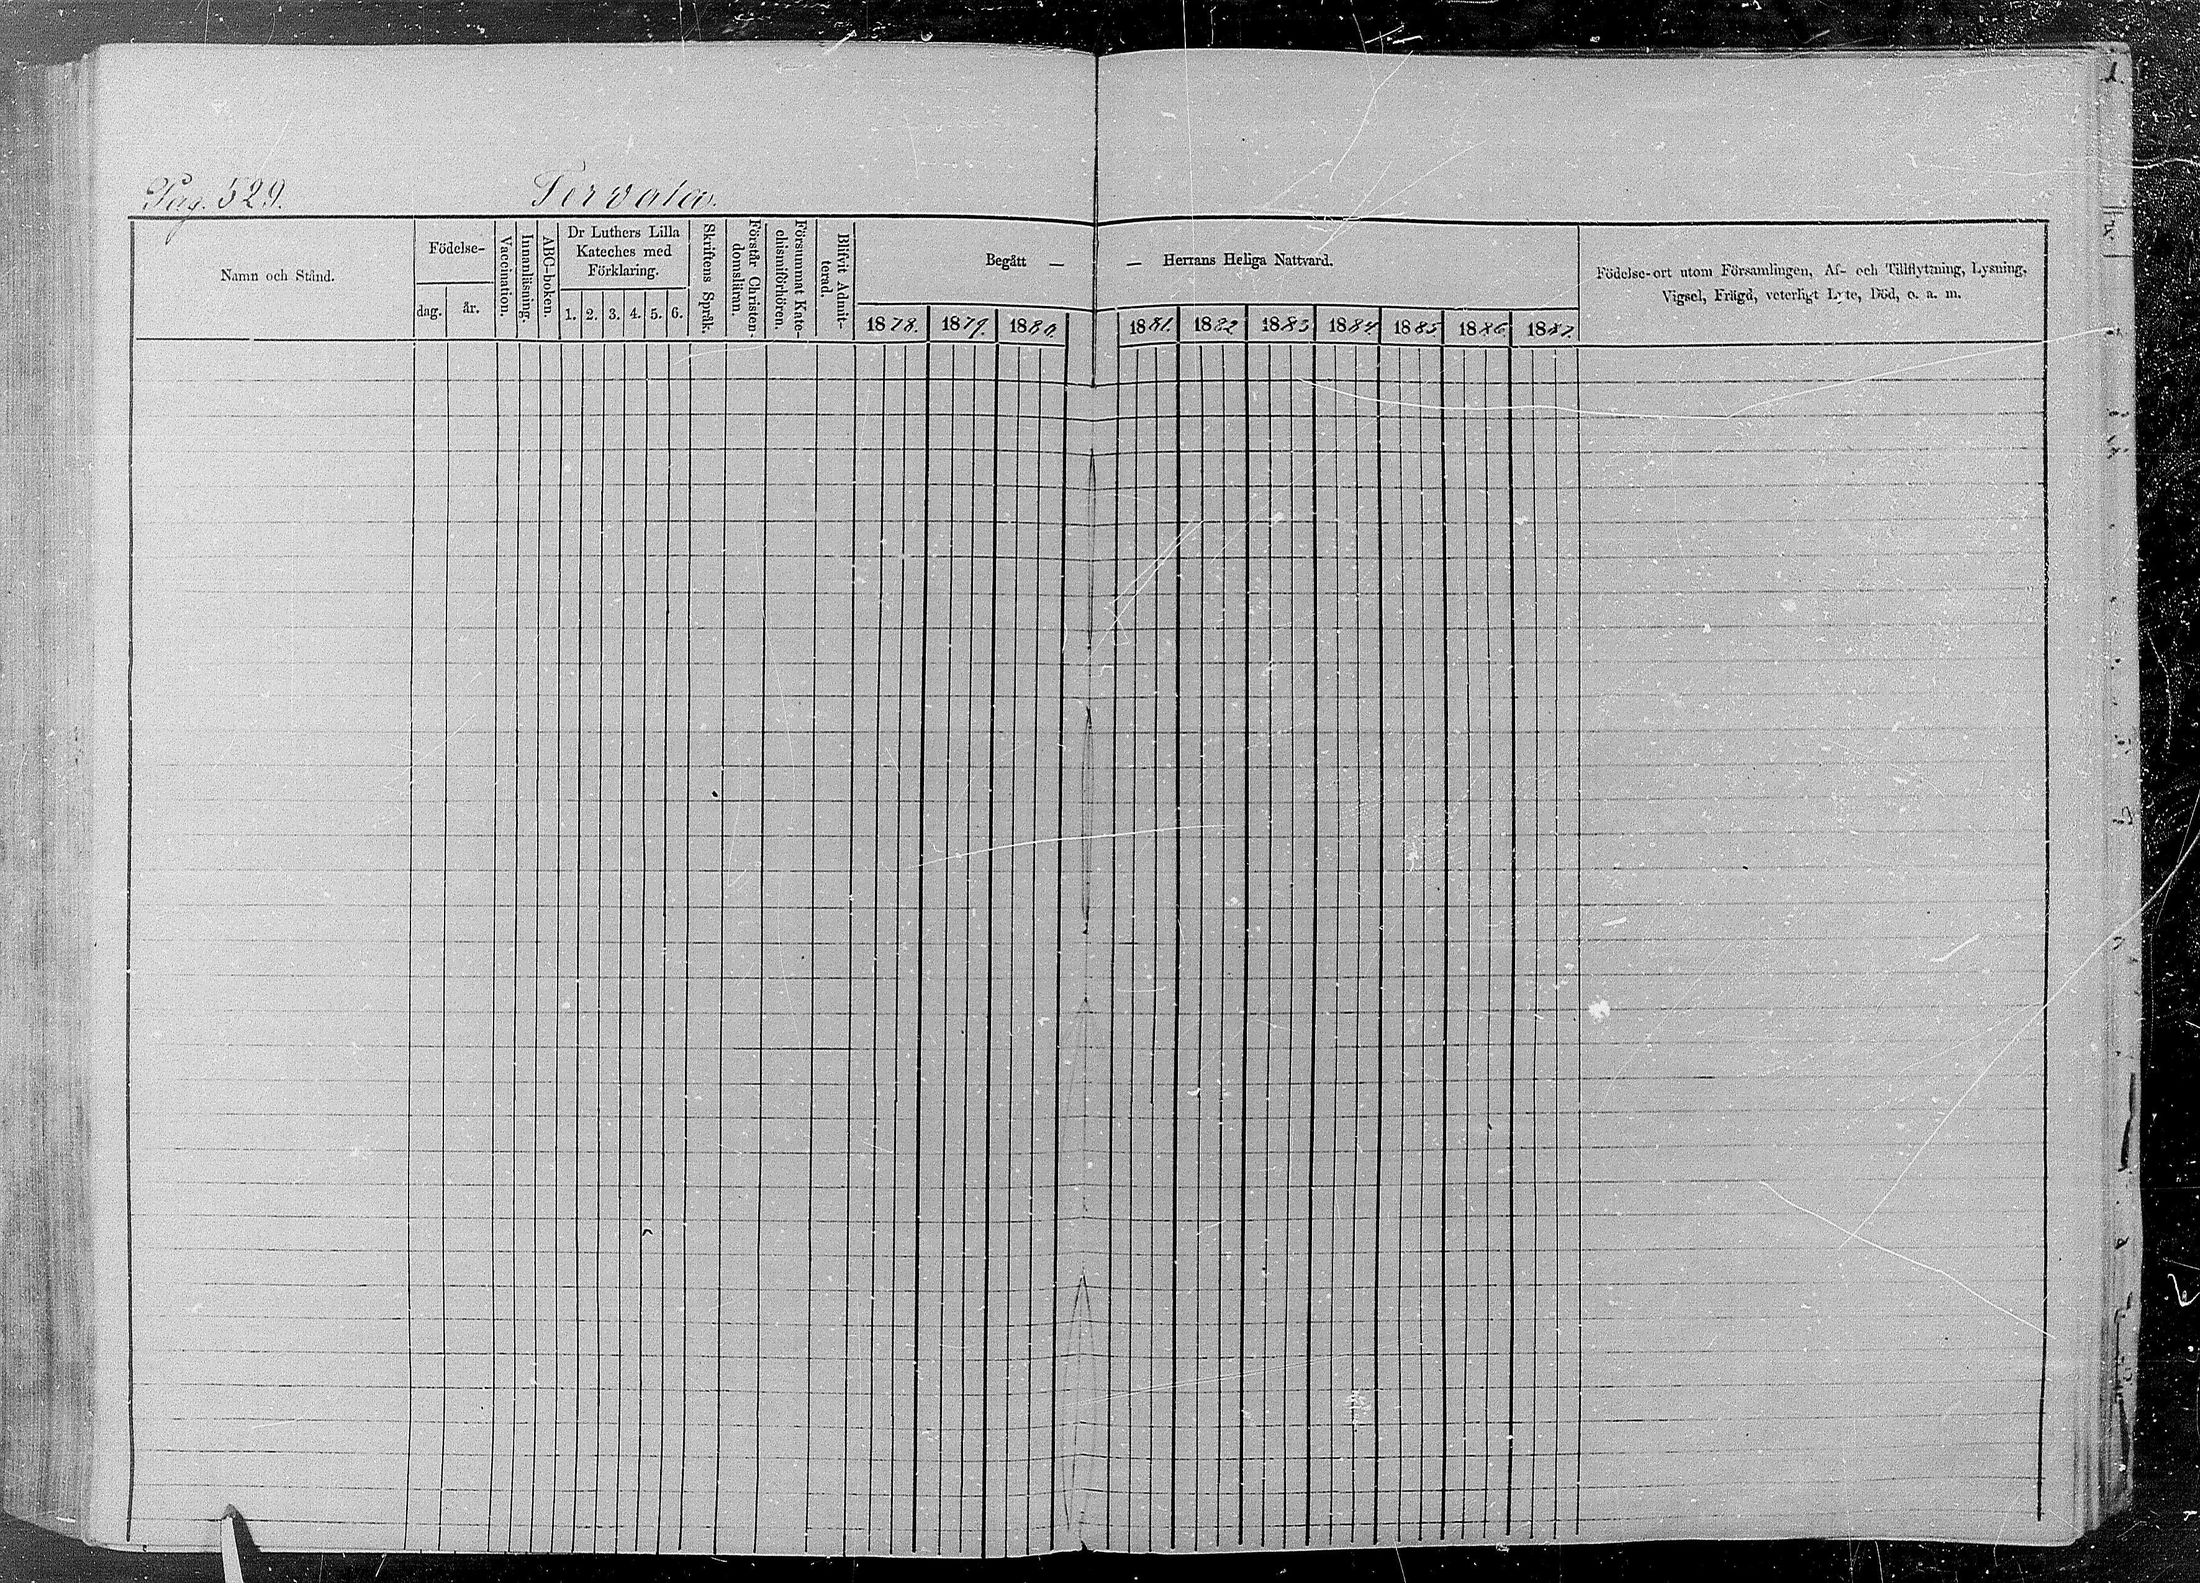 Pag. 529.
Tervola.
Namn och Stånd.
Födelse-
dag.
år.
Vaccination.
Innanläsning.
ABC-boken.
Dr Luthers Lilla
Kateches med
Förklaring.
1. 2. 3. 4. 5. 6.
Skriftens Språk.
Förstår Christen-
domsläran.
Försummat Kate-
chismiförhören.
Blifvit Admit-
terad.
Begått —
1878. 1879. 1880.
— Herrans Heliga Nattvard.
1881. 1882 1883 1884 1885. 1886 1887.
Födelse-ort utom Församlingen, Af- och Tillflyttning, Lysning,
Vigsel, Frägd, veterligt Lyte, Död, o. a. m.